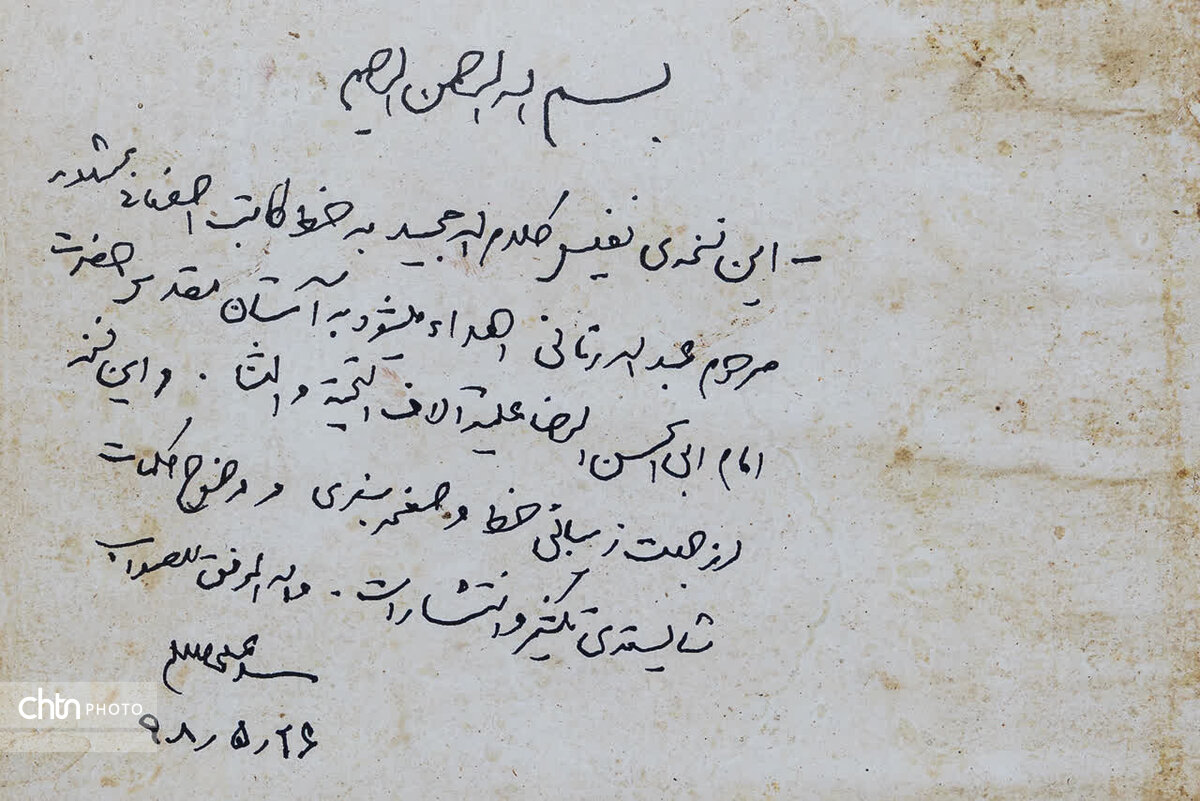 بسم الله الرحمن الرحیم
- این نسخه‌ی نفیس کلام‌الله مجید به خط کاتب اصفهانی
مرحوم عبدالله اهداء میشود به آستان مقدس حضرت
امام ابی‌الحسن الرضا علیه آلاف التحیة والثنا . و این نسخه
از جهت زیبائی خط و صفحه‌بندی و وضوح کلمات
شایسته‌ی تکثیر و انتشار است . والله الموفق للصواب
۹۸ر۵ر۲۶
chtn PHOTO